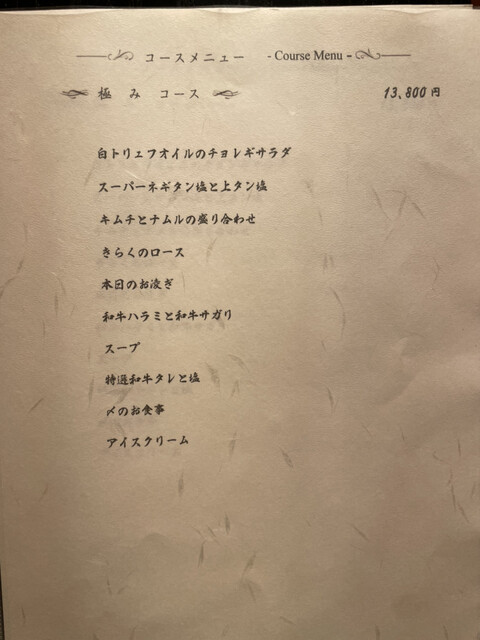 コースメニュー - Course Menu -
極み コース 13,800円
白トリュフオイルのチョレギサラダ
スーパーネギタン塩と上タン塩
キムチとナムルの盛り合わせ
きらくのロース
本日のお凌ぎ
和牛ハラミと和牛サガリ
スープ
特選和牛タレと塩
〆のお食事
アイスクリーム